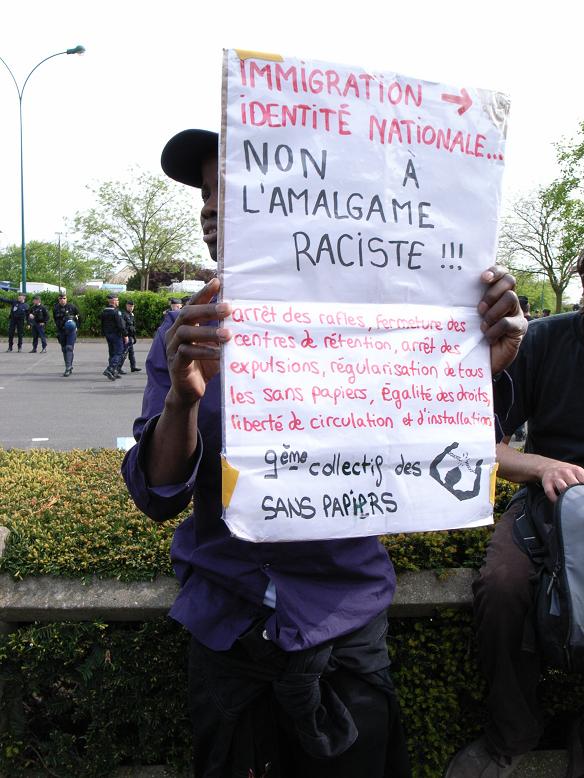 IMMIGRATION →
IDENTITÉ NATIONALE...
NON À
L'AMALGAME
RACISTE !!!
arrêt des rafles, fermeture des
centres de rétention, arrêt des
expulsions, régularisation de tous
les sans papiers, égalité des droits,
liberté de circulation et d'installation
9ème collectif des
SANS PAPIERS